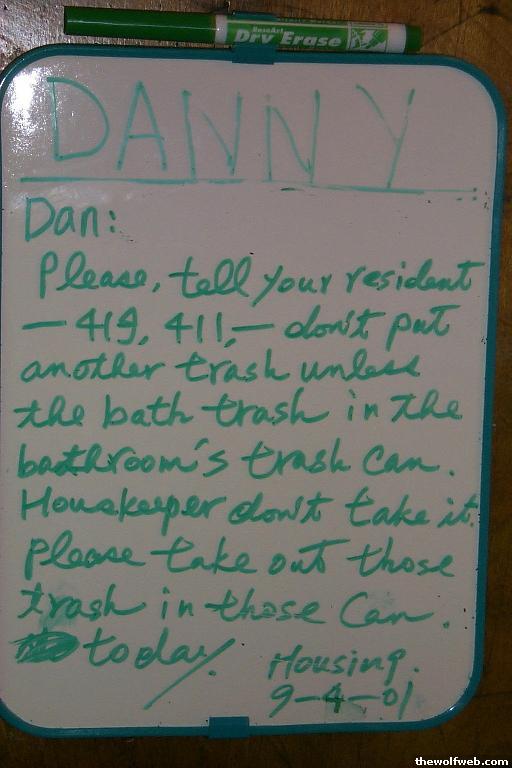 RoseArt
Dry Erase
DANNY
Dan:
Please, tell your resident
— 419, 411, — don't put
another trash unless
the bath trash in the
bathroom's trash can.
Housekeeper don't take it.
Please take out those
trash in those can.
today.
Housing.
9-4-01
thewolfweb.com